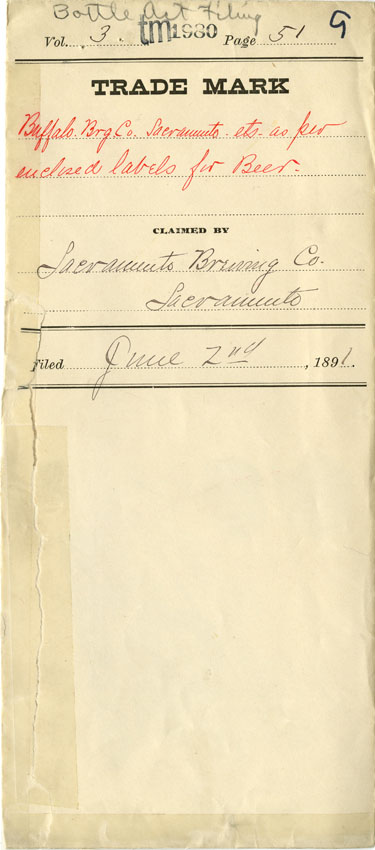 Bottle Act Filing
Vol. 3. tm1980 Page 51 G
TRADE MARK
Buffalo Brg. Co. Sacramento. etc. as per
enclosed labels for Beer.
CLAIMED BY
Sacramento Brewing Co.
Sacramento
Filed June 2nd, 1891.